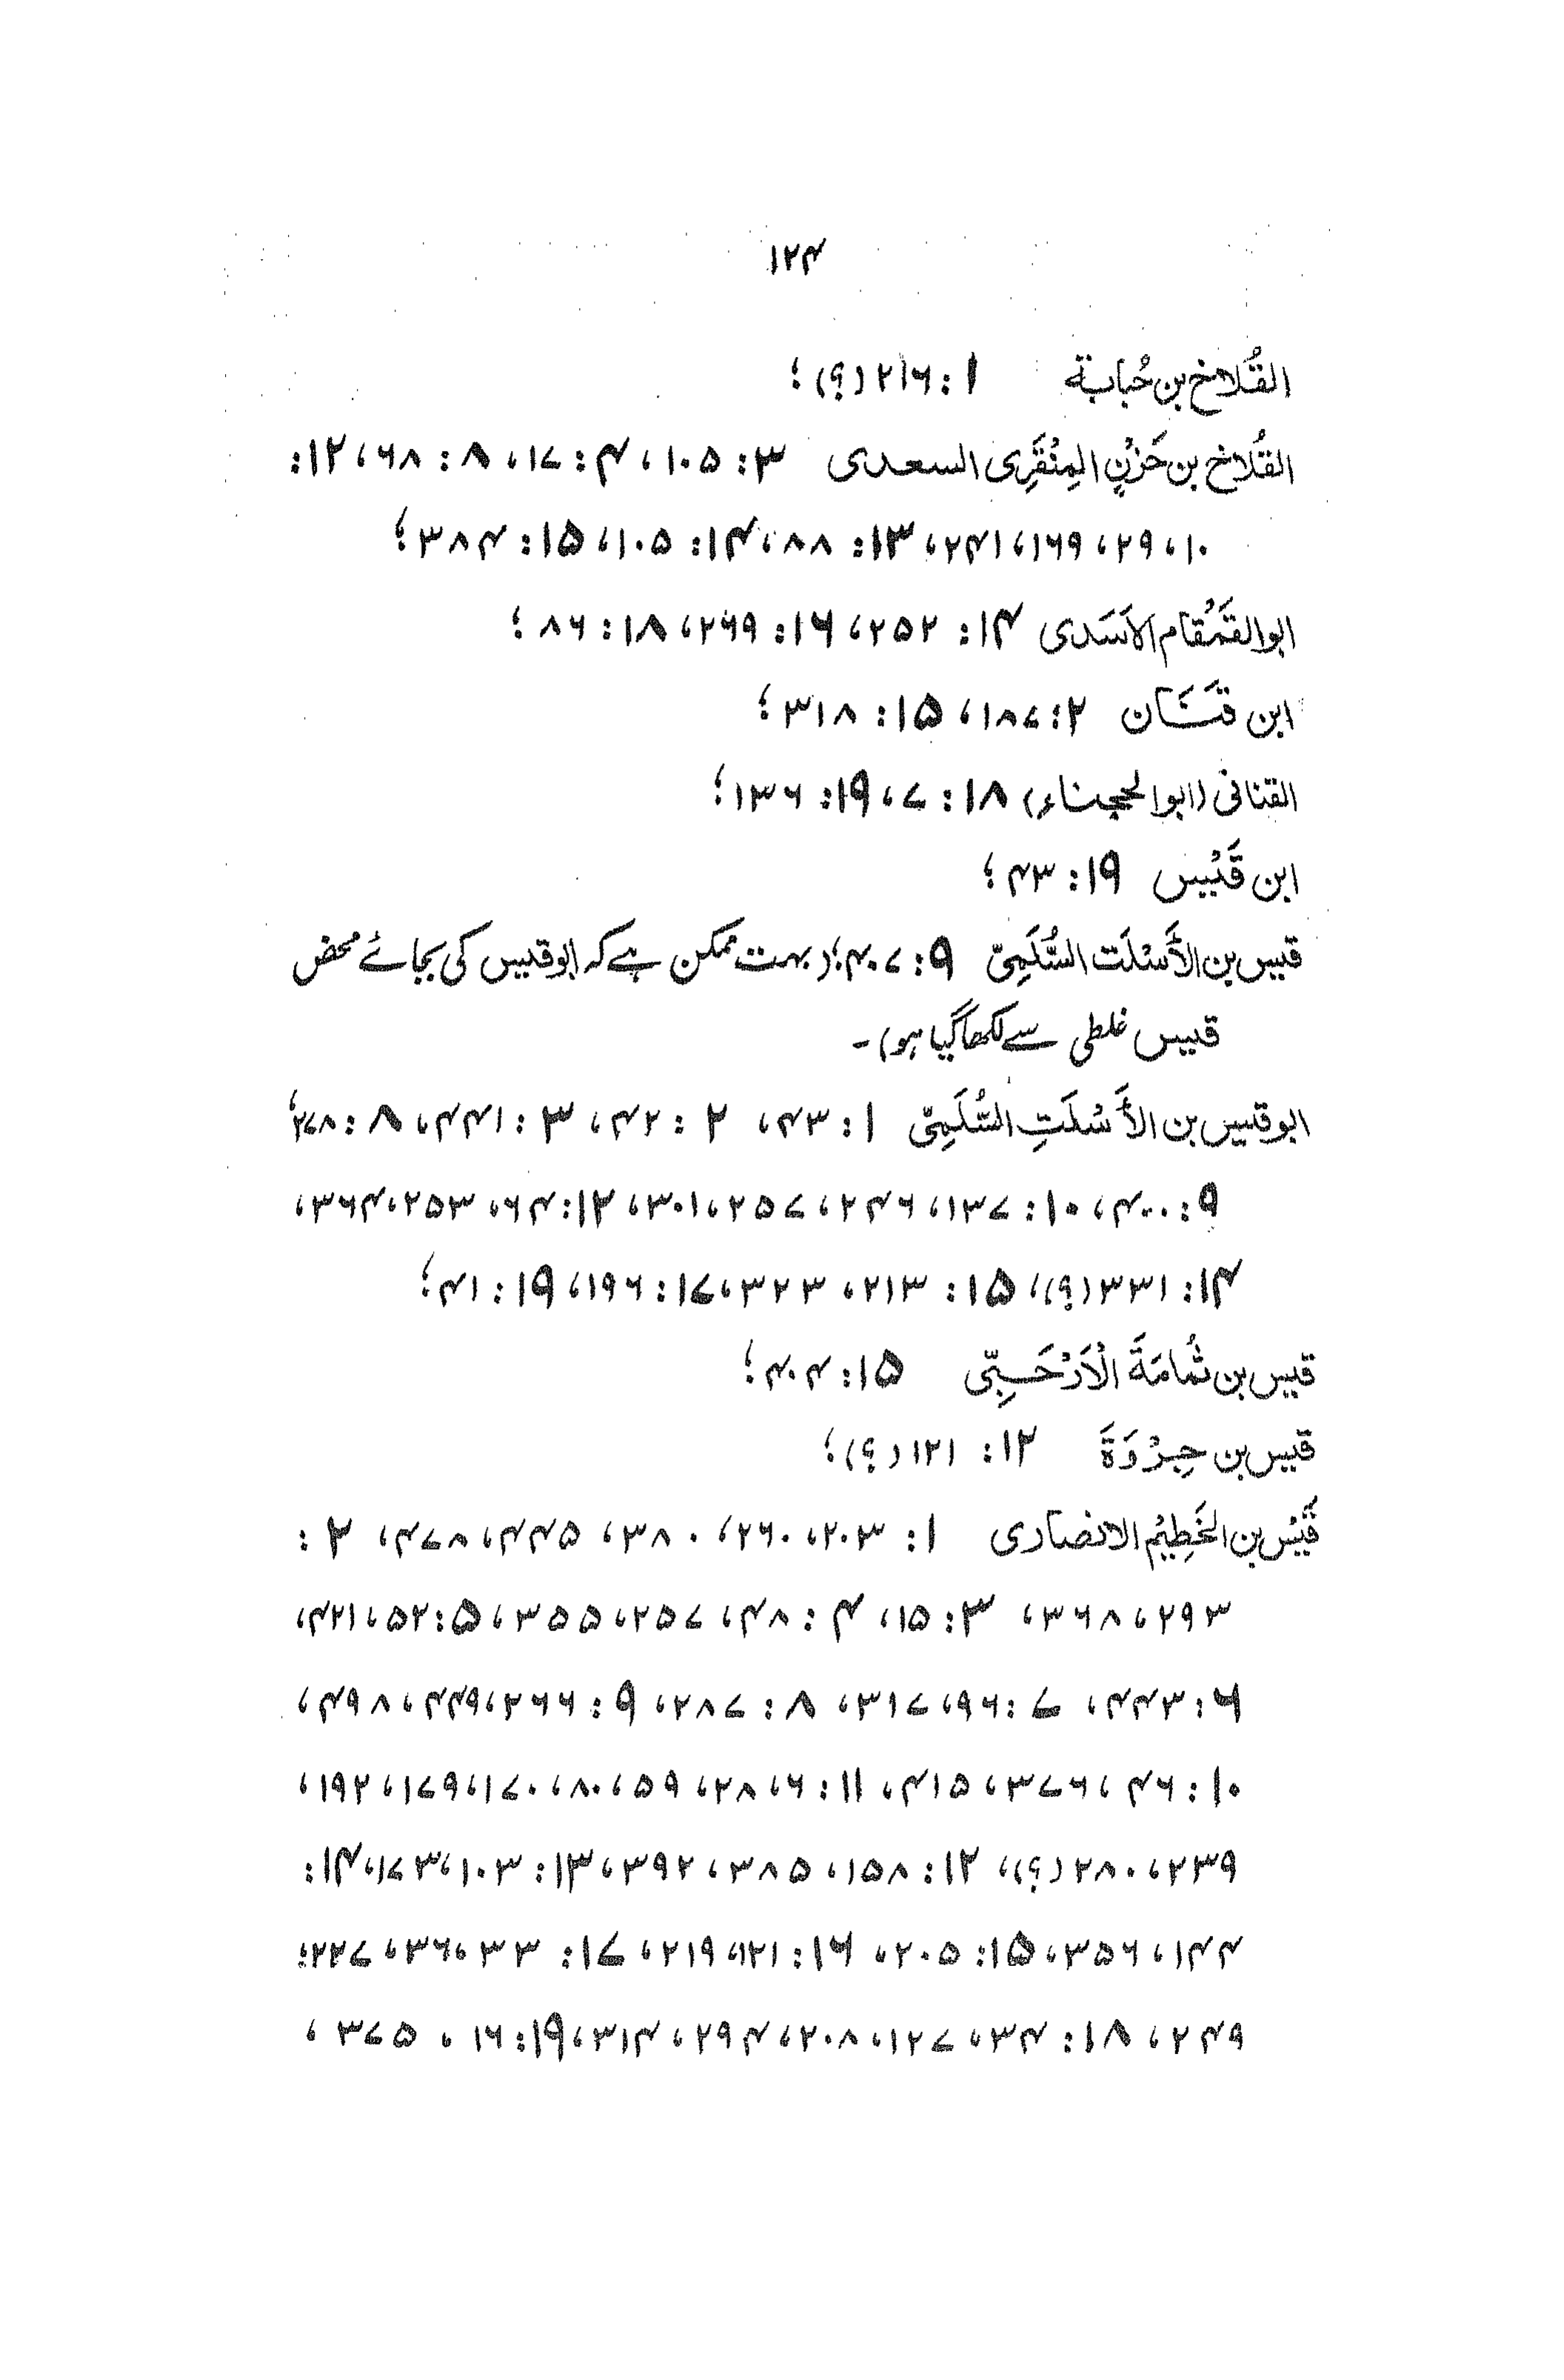 ۱۲۴
القُلاخ بن حُبابة ۱: ۲۱۶ (؟)؛
القُلاخ بن حَزْنٍ المِنْقَرِی السعدی ۳: ۱۰۵، ۴: ۱۷، ۸: ۶۸، ۱۲:
۱۰، ۲۹، ۱۶۹، ۲۴۱، ۱۳: ۸۸، ۱۴: ۱۰۵، ۱۵: ۳۸۴؛
ابوالقَمْقام الاَسَدی ۱۴: ۲۵۲، ۱۶: ۲۶۹، ۱۸: ۸۶؛
ابن قَنَان ۲: ۱۸۷، ۱۵: ۳۱۸؛
القنانی (ابوالحجناء) ۱۸: ۷، ۱۹: ۱۳۶؛
ابن قَیْس ۱۹: ۴۳؛
قیس بن الأَسْلَت السُّلَمِیّ ۹: ۴۰۷؛ (بہت ممکن ہے کہ ابوقیس کی بجائے محض
قیس غلطی سے لکھا گیا ہو)۔
ابوقیس بن الأَسْلَتِ السُّلَمِیّ ۱: ۴۳، ۲: ۴۲، ۳: ۴۴۱، ۸: ۲۷۸؛
۹: ۴۰۰، ۱۰: ۱۳۷، ۲۴۶، ۲۵۷، ۳۰۱، ۱۲: ۴۶، ۲۵۳، ۳۶۴،
۱۴: ۳۳۱ (؟)، ۱۵: ۲۱۳، ۳۲۳، ۱۷: ۱۹۶، ۱۹: ۴۱؛
قیس بن ثُمامَةَ الْاَرْحَبِیّ ۱۵: ۴۰۴؛
قیس بن جِرْوَةَ ۱۲: ۱۲۱ (؟)؛
قَیْس بن الخَطِیْم الانصاری ۱: ۲۰۳، ۲۶۰، ۳۸۰، ۴۴۵، ۴۷۸، ۲:
۲۹۳، ۳۶۸، ۳: ۱۵، ۴: ۴۸، ۲۵۷، ۳۵۵، ۵: ۵۲، ۴۲۱،
۶: ۴۴۳، ۷: ۹۶، ۳۱۷، ۸: ۲۸۷، ۹: ۲۶۶، ۴۴۹، ۴۹۸،
۱۰: ۴۶، ۳۷۶، ۴۱۵، ۱۱: ۶، ۲۸، ۵۹، ۸۰، ۱۷۰، ۱۷۹، ۱۹۲،
۲۳۹، ۲۸۰ (؟)، ۱۲: ۱۵۸، ۳۸۵، ۳۹۲، ۱۳: ۱۰۳، ۱۷۳، ۱۴:
۱۴۴، ۳۵۶، ۱۵: ۲۰۵، ۱۶: ۱۲۱، ۲۱۹، ۱۷: ۳۳، ۳۶، ۲۲۷؛
۲۴۹، ۱۸: ۳۴، ۱۲۷، ۲۰۸، ۲۹۴، ۳۱۴، ۱۹: ۱۶، ۳۷۵،